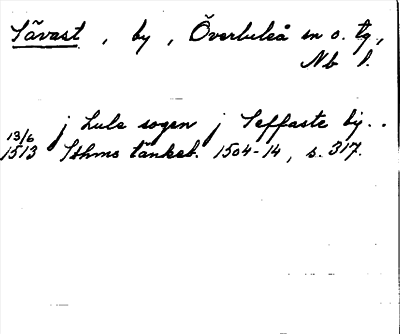 Sävast, by, Överluleå sn o. tg,
Nb l.
j Lule sogen j Seffaste by..
13/6
1513 Sthms tänkeb. 1504-14, s. 317.